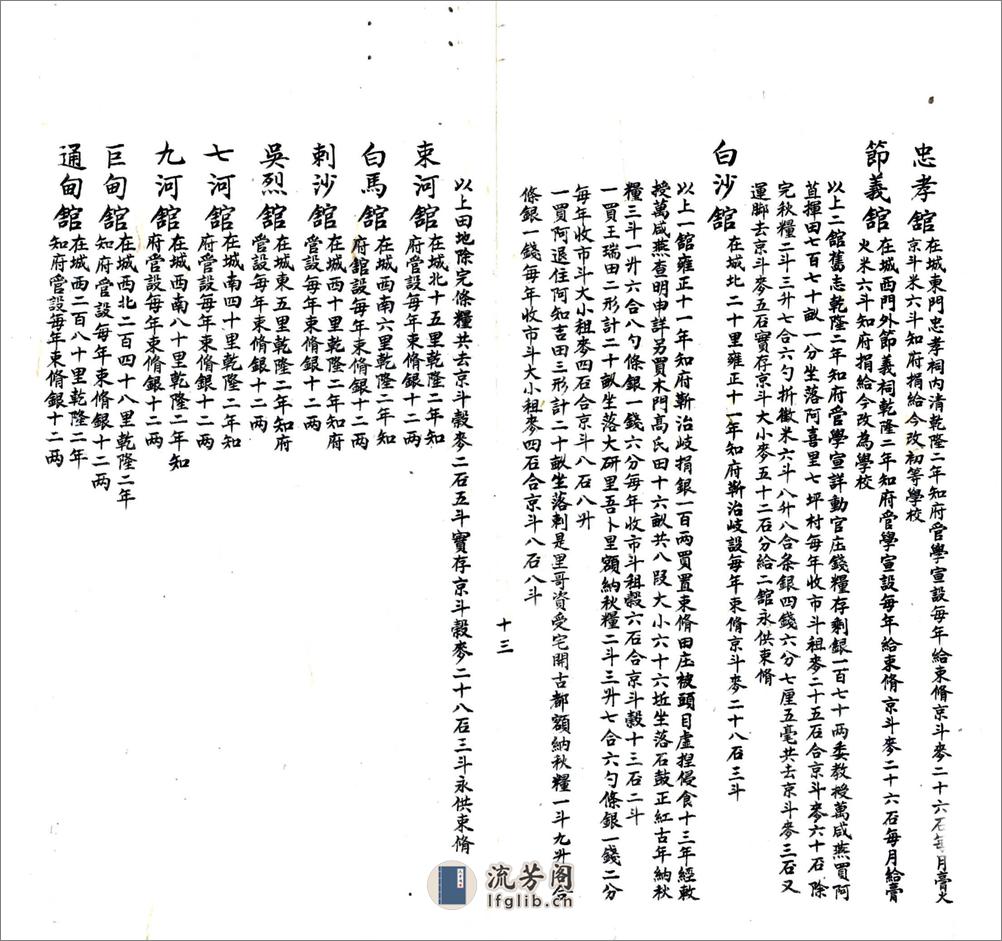 忠孝舘
在城東門忠孝祠内清乾隆二年知府管學宣設每年給束脩京斗麥二十六石每月膏火
京斗米六斗知府捐給今改初等學校
節義舘
在城西門外節義祠乾隆二年知府管學宣設每年給束脩京斗麥二十六石每月給膏
火米六斗知府捐給今改為學校
以上二舘舊志乾隆二年知府管學宣詳動官庄錢糧存剩銀一百七十兩委教授萬咸燕買阿
苴揮田七百七十畝一分坐落阿喜里七坪村每年收市斗租麥二十五石合京斗麥六十石除
完秋糧二斗三升七合六勺折徵米六斗八升八合条銀四錢六分七厘五毫共去京斗麥三石又
運脚去京斗麥五石實存京斗大小麥五十二石分給二舘永供束脩
白沙舘
在城北二十里雍正十一年知府靳治岐設每年束脩京斗麥二十八石三斗
以上一舘雍正十一年知府靳治岐捐銀一百兩買置束脩田庄被頭目虛捏侵食十三年經教
授萬咸燕查明申詳另買木門高氏田十六畝共八段大小六十六坵坐落石鼓正紅古年納秋
糧三斗一升六合八勺條銀一錢六分每年收市斗租穀六石合京斗穀十三石二斗
一買王瑞田二形計二十畝坐落大研里吾卜里額納秋糧二斗三升七合六勺條銀一錢二分
每年收市斗大小租麥四石合京斗八石八升
一買阿退住阿知吉田三形計二十畝坐落剌是里哥資受宅開古都額納秋糧一斗九升合
條銀一錢每年收市斗大小租麥四石合京斗八石八斗
十三
以上田地除完條糧共去京斗穀麥二石五斗實存京斗穀麥二十八石三斗永供束脩
束河舘
在城北十五里乾隆二年知
府管設每年束脩銀十二兩
白馬舘
在城西南六里乾隆二年知
府舘設每年束脩銀十二兩
剌沙舘
在城西十里乾隆二年知府
管設每年束脩銀十二兩
吳烈舘
在城東五里乾隆二年知府
管設每年束脩銀十二兩
七河舘
在城南四十里乾隆二年知
府管設每年束脩銀十二兩
九河舘
在城西南八十里乾隆二年知
府管設每年束脩銀十二兩
巨甸舘
在城西北二百四十八里乾隆二年
知府管設每年束脩銀十二兩
通甸舘
在城西二百八十里乾隆二年
知府管設每年束脩銀十二兩
流芳阁
lfglib.cn